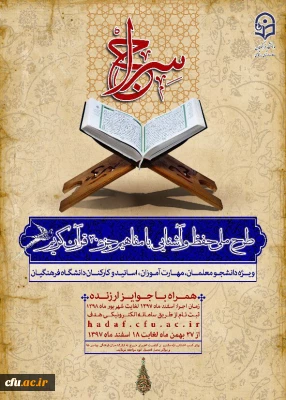 سراج
طرح ملی حفظ و آشنایی با مفاهیم جزء ۳۰ قرآن کریم
ویژه دانشجو معلمان، مهارت آموزان، اساتید و کارکنان دانشگاه فرهنگیان
همراه با جوایز ارزنده
زمان اجرا: اسفند ماه ۱۳۹۷ لغایت شهریور ماه ۱۳۹۸
ثبت نام از طریق سامانه الکترونیکی هدف
hadaf.cfu.ac.ir
از ۲۷ بهمن ماه لغایت ۱۸ اسفند ماه ۱۳۹۷
cfu.ac.ir